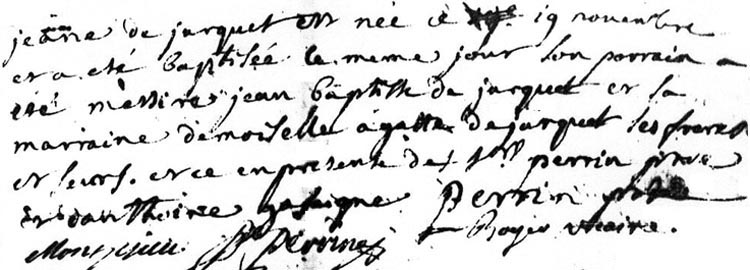 jeanne de jurquet est née ce 19 novembre
et a eté baptisée le meme jour son parrain a
eté messire jean baptiste de jurquet et sa
marraine demoiselle agatte de jurquet ses freres
et seurs. et ce en presence de perrin
et d'anthoine gasaigne Perrin
Perrine Roger vicaire.